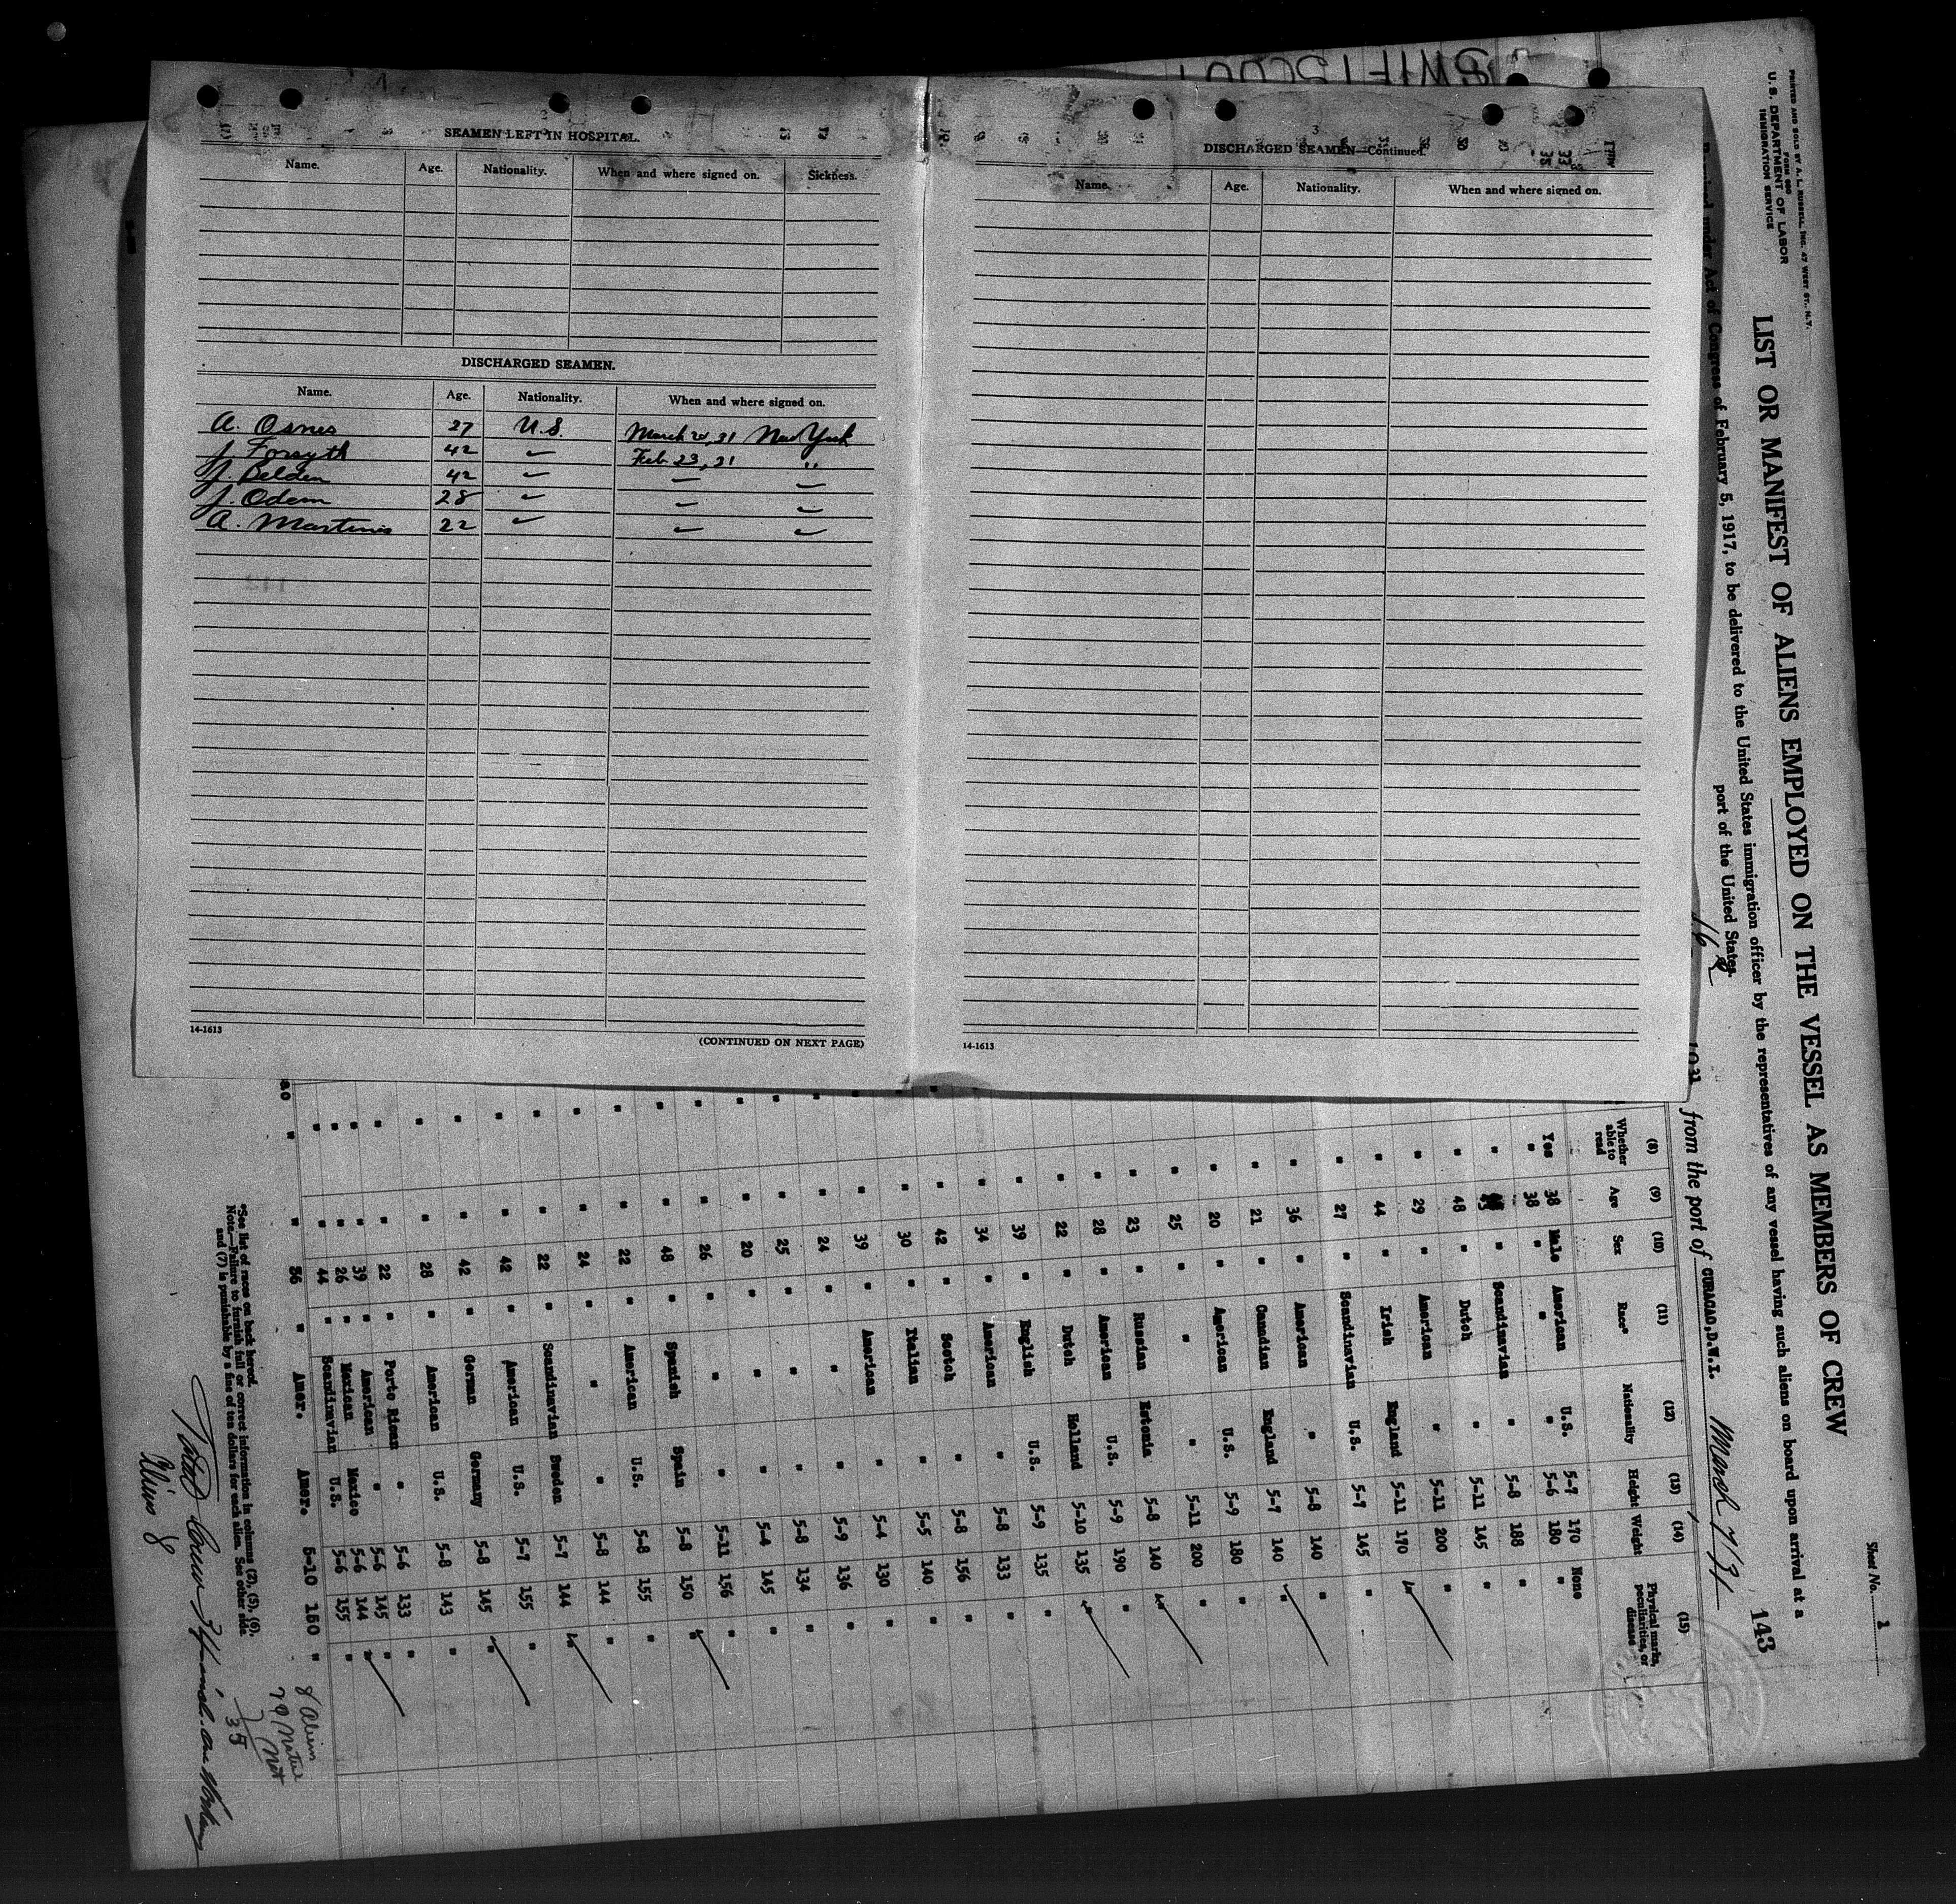 SWIFTSCOUT
2
SEAMEN LEFT IN HOSPITAL.
Name. Age. Nationality. When and where signed on. Sickness.
DISCHARGED SEAMEN.
Name. Age. Nationality. When and where signed on.
A. Osnes 27 U.S. March 20, 31 New York
J. Forsyth 42 " Feb 23, 31 "
J. Belden 42 " " "
J. Odom 28 " " "
A. Martinis 22 " " "
14-1613
(CONTINUED ON NEXT PAGE)
3
DISCHARGED SEAMEN—Continued.
Name. Age. Nationality. When and where signed on.
14-1613
PRINTED AND SOLD BY A. L. RUSSELL, INC. 47 WEST ST., N.Y.
FORM 680
U.S. DEPARTMENT OF LABOR
IMMIGRATION SERVICE
Sheet No. 1
LIST OR MANIFEST OF ALIENS EMPLOYED ON THE VESSEL AS MEMBERS OF CREW
143
under Act of Congress of February 5, 1917, to be delivered to the United States immigration officer by the representatives of any vessel having such aliens on board upon arrival at a
port of the United States.
1931 from the port of CURACAO, D.W.I. March 7/31
(8) (9) (10) (11) (12) (13) (14) (15)
Whether able to read Age Sex Race* Nationality Height Weight Physical marks, peculiarities, or disease
Yes 38 Male American U.S. 5-7 170 None
" 38 " " " 5-6 180 "
" " Scandinavian " 5-8 188 "
" 48 " Dutch " 5-11 145 "
" 29 " American " 5-11 200 "
" 44 " Irish England 5-11 170 "
" 27 " Scandinavian U.S. 5-7 145 "
" 36 " American " 5-8 140 "
" 21 " Canadian England 5-7 140 "
" 20 " American U.S. 5-9 180 "
" 25 " " " 5-11 200 "
" 23 " Russian Estonia 5-8 140 "
" 28 " American U.S. 5-9 190 "
" 22 " Dutch Holland 5-10 135 "
" 39 " English U.S. 5-9 135 "
" 34 " American " 5-8 133 "
" 42 " Scotch " 5-8 156 "
" 30 " Italian " 5-5 140 "
" 39 " American " 5-4 130 "
" 24 " " " 5-9 136 "
" 25 " " " 5-8 134 "
" 20 " " " 5-4 145 "
" 26 " " " 5-11 156 "
" 48 " Spanish Spain 5-8 150 "
" 22 " American U.S. 5-8 155 "
" 24 " " " 5-8 144 "
" 22 " Scandinavian Sweden 5-7 144 "
" 42 " American U.S. 5-7 155 "
" 42 " German Germany 5-8 145 "
" 28 " American U.S. 5-8 143 "
" 22 " Porto Rican " 5-6 133 "
" 39 " American " 5-6 145 "
" 26 " Mexican Mexico 5-6 144 "
" 44 " Scandinavian U.S. 5-6 155 "
" 36 " Amer. Amer. 5-10 150 "
*See list of races on back hereof.
Note.—Failure to furnish full or correct information in columns (2), (5), (6),
and (7) is punishable by a fine of ten dollars for each alien. See other side.
8 Aliens
35
Total Crew
Aliens 8